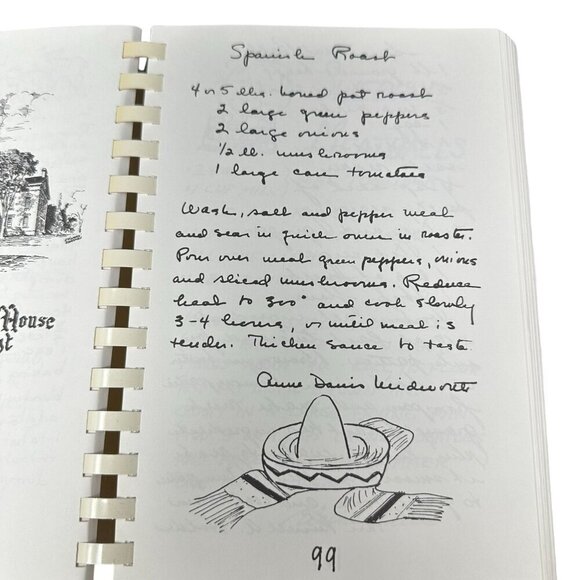 House
Spanish Roast
4 or 5 lbs. boned pot roast
2 large green peppers
2 large onions
1/2 lb. mushrooms
1 large can tomatoes
Wash, salt and pepper meat
and sear in quick oven in roaster.
Pour over meat green peppers, onions
and sliced mushrooms. Reduce
heat to 300° and cook slowly
3-4 hours, or until meat is
tender. Thicken sauce to taste.
Anne Davis
99